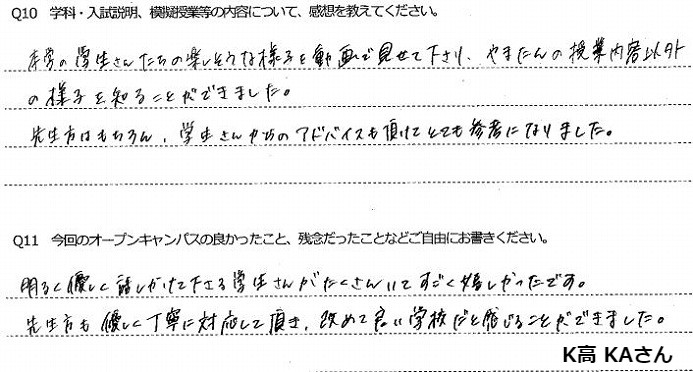 Q10 学科・入試説明、模擬授業等の内容について、感想を教えてください。
本学の学生さんたちの楽しそうな様子を動画で見せて下さり、やまたんの授業内容以外
の様子を知ることができました。
先生方はもちろん、学生さんからのアドバイスも頂けてとても参考になりました。
Q11 今回のオープンキャンパスの良かったこと、残念だったことなどご自由にお書きください。
明るく優しく話しかけて下さる学生さんがたくさんいてすごく嬉しかったです。
先生方も優しく丁寧に対応して頂き、改めて良い学校だと感じることができました。
K高 KAさん